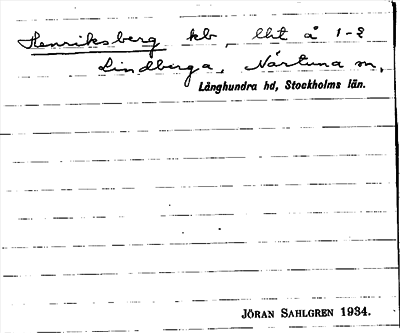 Henriksberg kb, lht å 1-2
Lindberga, Närtuna sn,
Långhundra hd, Stockholms län.
JÖRAN SAHLGREN 1934.